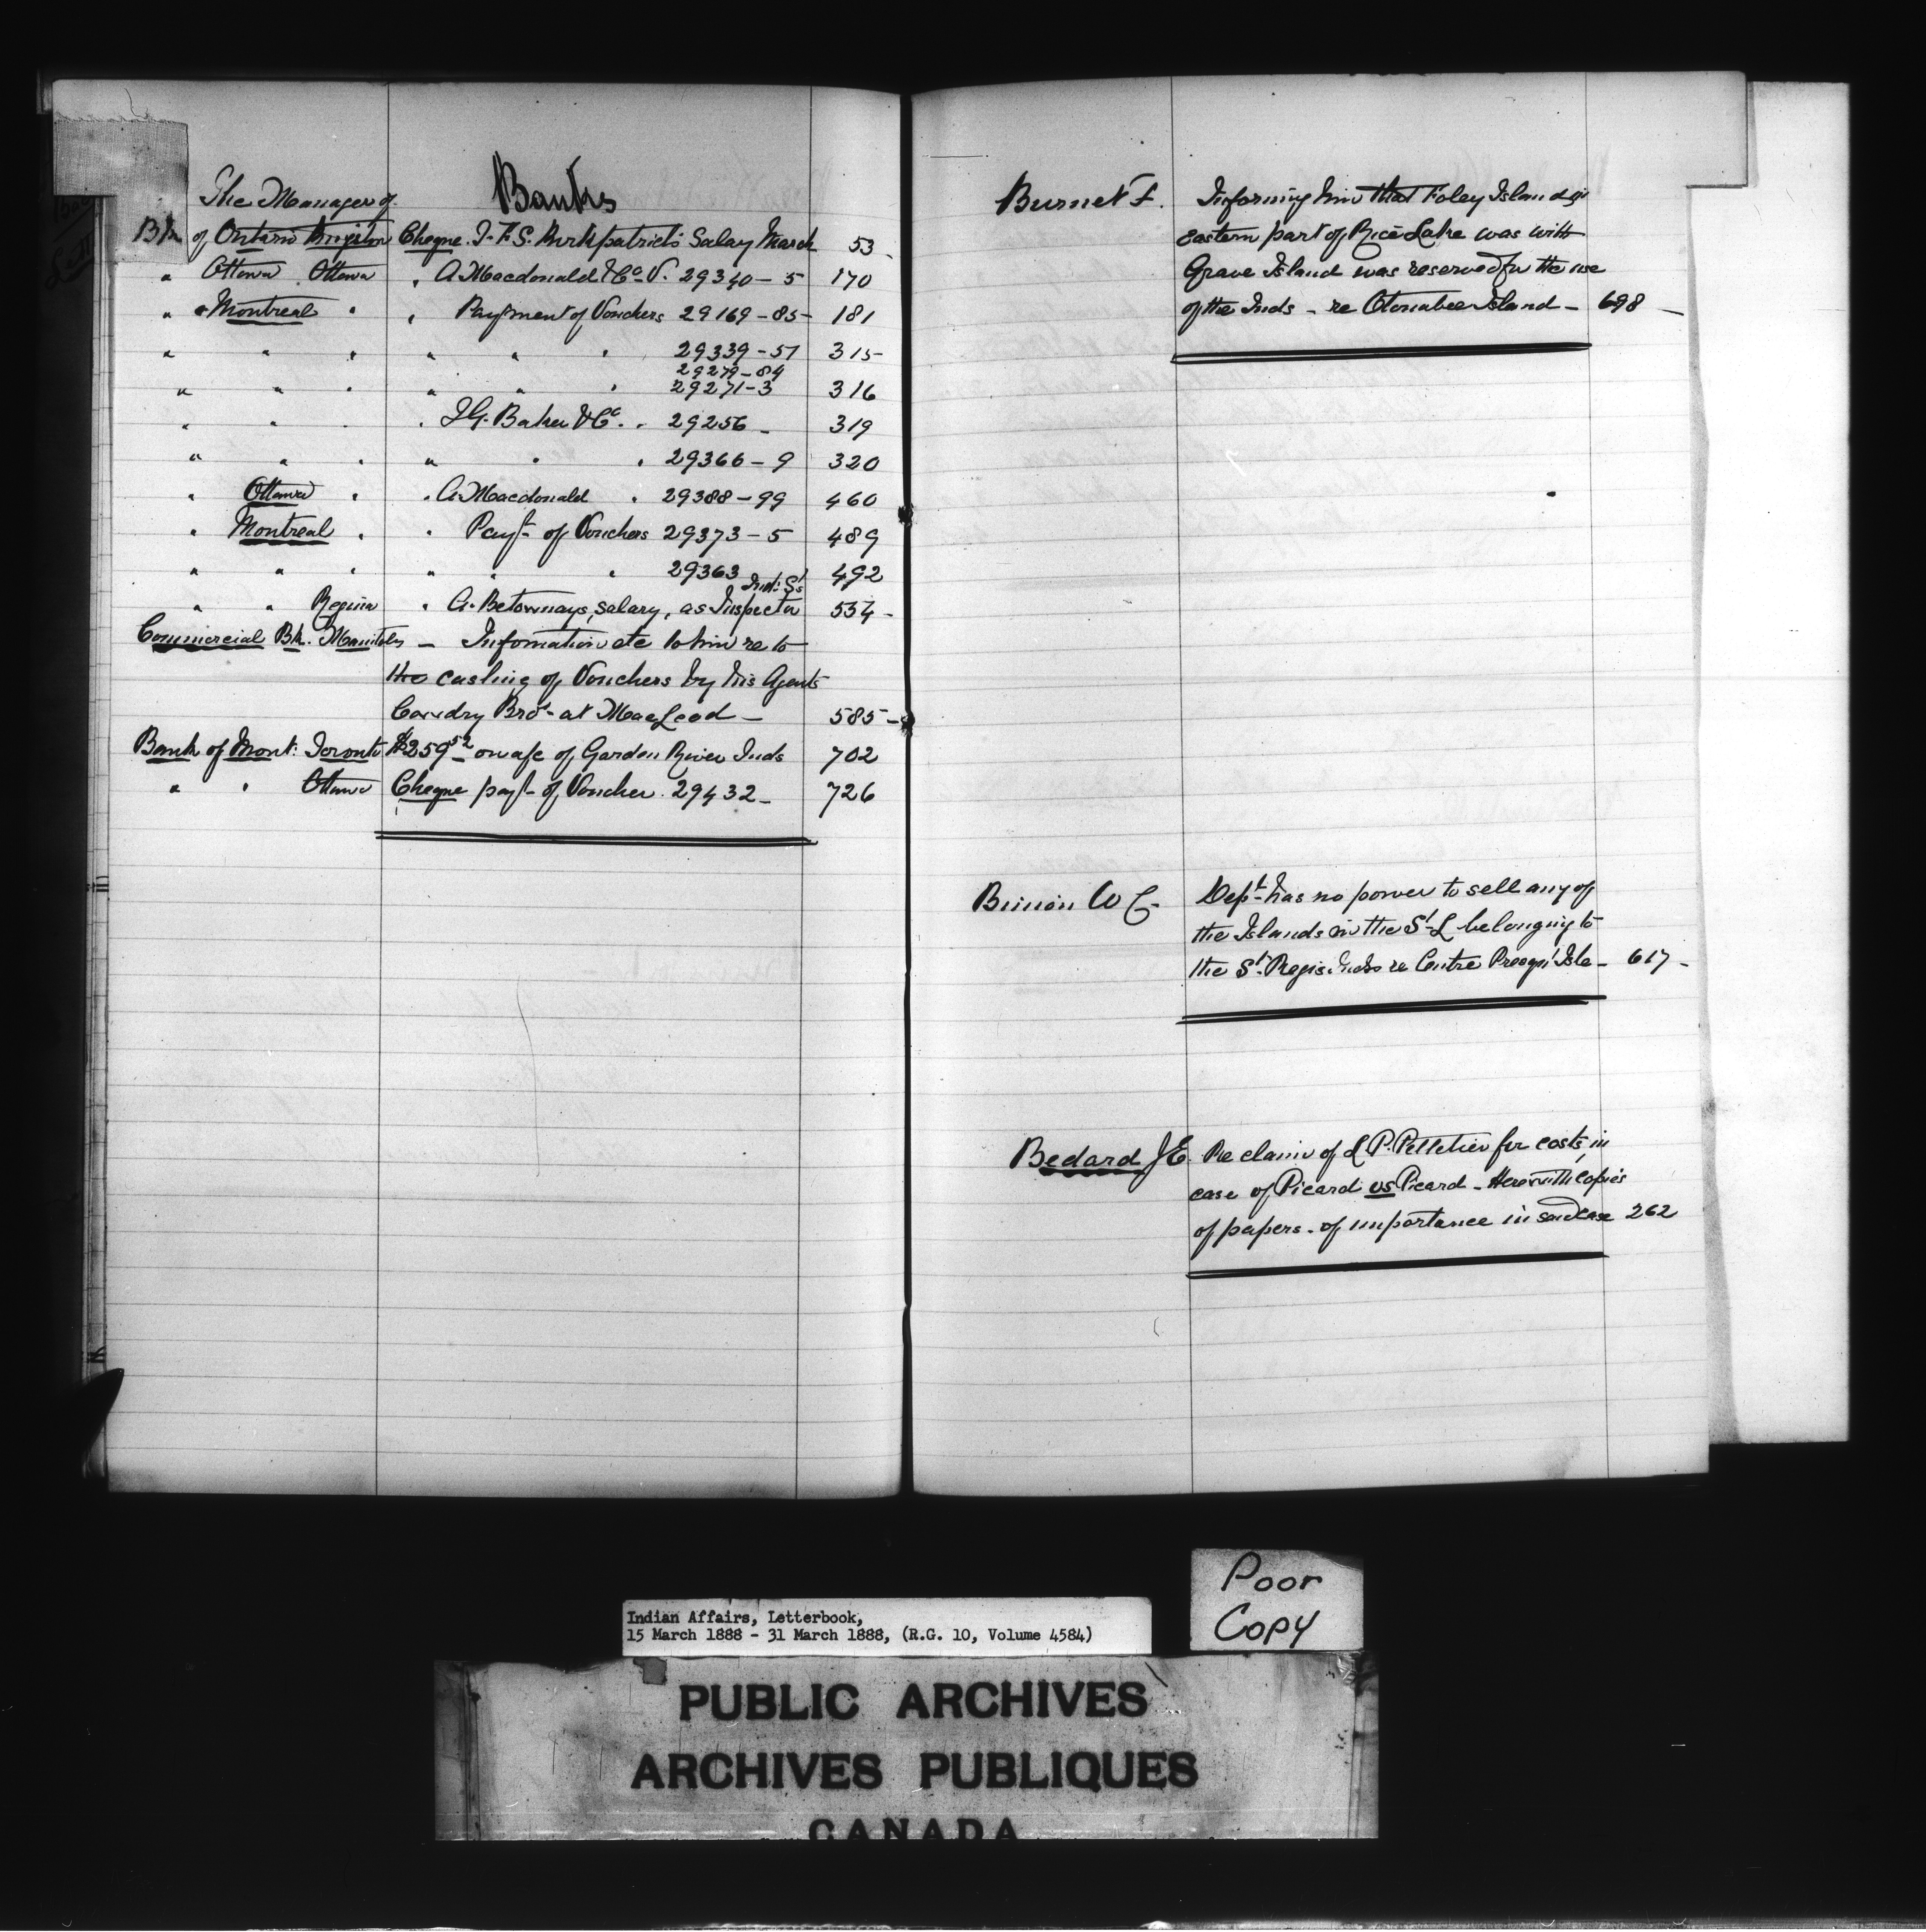 The Manager of Banks
Bk of Ontario Kingston Cheque I. F. S. Kirkpatrick's Salay March 53
" Ottawa Ottawa " A. Macdonald & Co V. 29340-5 170
" Montreal " " Payment of Vouchers 29169-85- 181
" " " " " " 29339-51 315-
29279-84
" " " " " " 29271-3 316
" " " " I.G. Baker & Co. " 29256- 319
" " " " " " 29366-9 320
" Ottawa " " A. Macdonald " 29388-99 460
" Montreal " " Payt of Vouchers 29373-5 489
" " " " " " 29363 492
Ind: Sc
" " Regina " A. Betournays, salary, as Inspector 534-
Commercial Bk. Manitoba - Infomation etc to him re to
the cashing of Vouchers by his Agents
Cowdry Bros- at MacLeod- 585-
Bank of Mont: Toronto $259.52 on a/c of Garden River Inds 702
" " Ottawa Cheque payt of Voucher 29432- 726
Burnet F. Informing him that Foley Island in
eastern part of Rice Lake was with
Grave Island was reserved for the use
of the Inds - re Otonabee Island - 698 -
W C. Dept has no power to sell any of
the Islands in the St L belonging to
the St Regis Inds re Centre Isle - 617 -
Bedard J E. Re claim of L. P. Pelletier for costs, in
case of Picard vs Picard - Herewith copies
of papers - of importance in said case 262
Poor
Copy
Indian Affairs, Letterbook,
15 March 1888 - 31 March 1888, (R.G. 10, Volume 4584)
PUBLIC ARCHIVES
ARCHIVES PUBLIQUES
CANADA